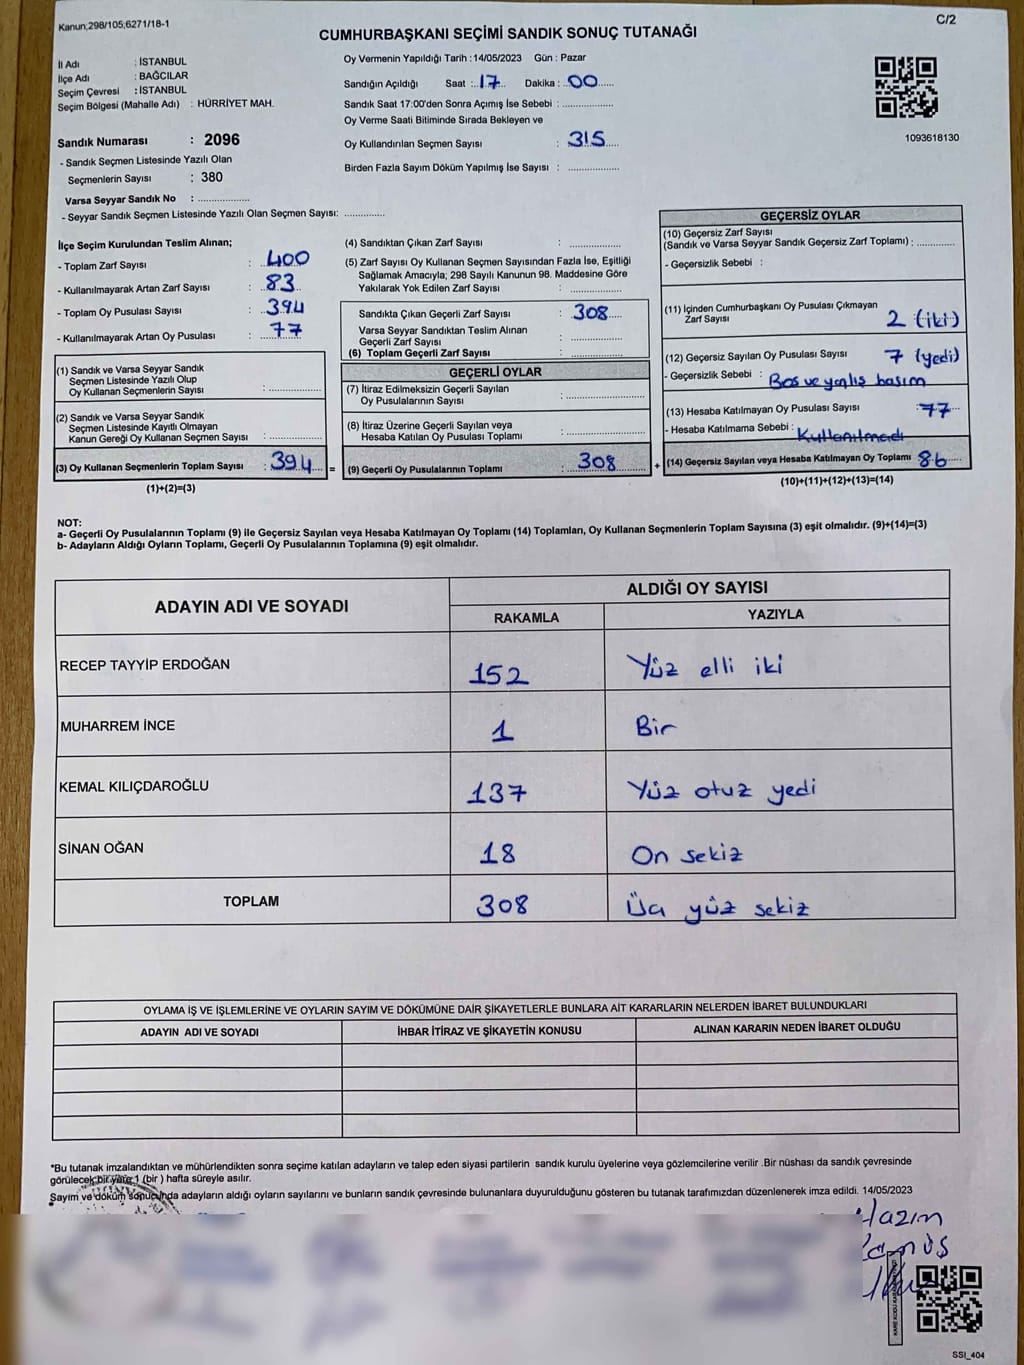 Kanun;298/105;6271/18-1
C/2
CUMHURBAŞKANI SEÇİMİ SANDIK SONUÇ TUTANAĞI
İl Adı : İSTANBUL
İlçe Adı : BAĞCILAR
Seçim Çevresi : İSTANBUL
Seçim Bölgesi (Mahalle Adı) : HÜRRİYET MAH.
Sandık Numarası : 2096
- Sandık Seçmen Listesinde Yazılı Olan
Seçmenlerin Sayısı : 380
Varsa Seyyar Sandık No : ..................
- Seyyar Sandık Seçmen Listesinde Yazılı Olan Seçmen Sayısı: ..............
Oy Vermenin Yapıldığı Tarih : 14/05/2023 Gün : Pazar
Sandığın Açıldığı Saat :..17... Dakika :..00......
Sandık Saat 17:00'den Sonra Açımış İse Sebebi : ..................
Oy Verme Saati Bitiminde Sırada Bekleyen ve
Oy Kullandırılan Seçmen Sayısı : 315....
Birden Fazla Sayım Döküm Yapılmış İse Sayısı : ..................
1093618130
İlçe Seçim Kurulundan Teslim Alınan;
- Toplam Zarf Sayısı : 400
- Kullanılmayarak Artan Zarf Sayısı : 83
- Toplam Oy Pusulası Sayısı : 394
- Kullanılmayarak Artan Oy Pusulası : 77
(1) Sandık ve Varsa Seyyar Sandık
Seçmen Listesinde Yazılı Olup
Oy Kullanan Seçmenlerin Sayısı : ..................
(2) Sandık ve Varsa Seyyar Sandık
Seçmen Listesinde Kayıtlı Olmayan
Kanun Gereği Oy Kullanan Seçmen Sayısı : ..................
(3) Oy Kullanan Seçmenlerin Toplam Sayısı : 394 =
(1)+(2)=(3)
(4) Sandıktan Çıkan Zarf Sayısı : ..................
(5) Zarf Sayısı Oy Kullanan Seçmen Sayısından Fazla İse, Eşitliği
Sağlamak Amacıyla; 298 Sayılı Kanunun 98. Maddesine Göre
Yakılarak Yok Edilen Zarf Sayısı : ..................
Sandıkta Çıkan Geçerli Zarf Sayısı : 308....
Varsa Seyyar Sandıktan Teslim Alınan
Geçerli Zarf Sayısı : ..................
(6) Toplam Geçerli Zarf Sayısı : ..................
GEÇERLİ OYLAR
(7) İtiraz Edilmeksizin Geçerli Sayılan
Oy Pusulalarının Sayısı : ..................
(8) İtiraz Üzerine Geçerli Sayılan veya
Hesaba Katılan Oy Pusulası Toplamı : ..................
(9) Geçerli Oy Pusulalarının Toplamı : 308 +
GEÇERSİZ OYLAR
(10) Geçersiz Zarf Sayısı
(Sandık ve Varsa Seyyar Sandık Geçersiz Zarf Toplamı) : .............
- Geçersizlik Sebebi :
(11) İçinden Cumhurbaşkanı Oy Pusulası Çıkmayan
Zarf Sayısı 2 (iki)
(12) Geçersiz Sayılan Oy Pusulası Sayısı 7 (yedi)
- Geçersizlik Sebebi : Bos ve yanlış basım
(13) Hesaba Katılmayan Oy Pusulası Sayısı : 77
- Hesaba Katılmama Sebebi : Kullanılmadı
(14) Geçersiz Sayılan veya Hesaba Katılmayan Oy Toplamı 86
(10)+(11)+(12)+(13)=(14)
NOT:
a- Geçerli Oy Pusulalarının Toplamı (9) ile Geçersiz Sayılan veya Hesaba Katılmayan Oy Toplamı (14) Toplamları, Oy Kullanan Seçmenlerin Toplam Sayısına (3) eşit olmalıdır. (9)+(14)=(3)
b- Adayların Aldığı Oyların Toplamı, Geçerli Oy Pusulalarının Toplamına (9) eşit olmalıdır.
ADAYIN ADI VE SOYADI ALDIĞI OY SAYISI
RAKAMLA YAZIYLA
RECEP TAYYİP ERDOĞAN 152 Yüz elli iki
MUHARREM İNCE 1 Bir
KEMAL KILIÇDAROĞLU 137 Yüz otuz yedi
SİNAN OĞAN 18 On sekiz
TOPLAM 308 Üç yüz sekiz
OYLAMA İŞ VE İŞLEMLERİNE VE OYLARIN SAYIM VE DÖKÜMÜNE DAİR ŞİKAYETLERLE BUNLARA AİT KARARLARIN NELERDEN İBARET BULUNDUKLARI
ADAYIN ADI VE SOYADI İHBAR İTİRAZ VE ŞİKAYETİN KONUSU ALINAN KARARIN NEDEN İBARET OLDUĞU
*Bu tutanak imzalandıktan ve mühürlendikten sonra seçime katılan adayların ve talep eden siyasi partilerin sandık kurulu üyelerine veya gözlemcilerine verilir .Bir nüshası da sandık çevresinde
görülecek bir yere 1 (bir ) hafta süreyle asılır.
Sayım ve döküm sonucunda adayların aldığı oyların sayılarını ve bunların sandık çevresinde bulunanlara duyurulduğunu gösteren bu tutanak tarafımızdan düzenlenerek imza edildi. 14/05/2023
SSİ_404